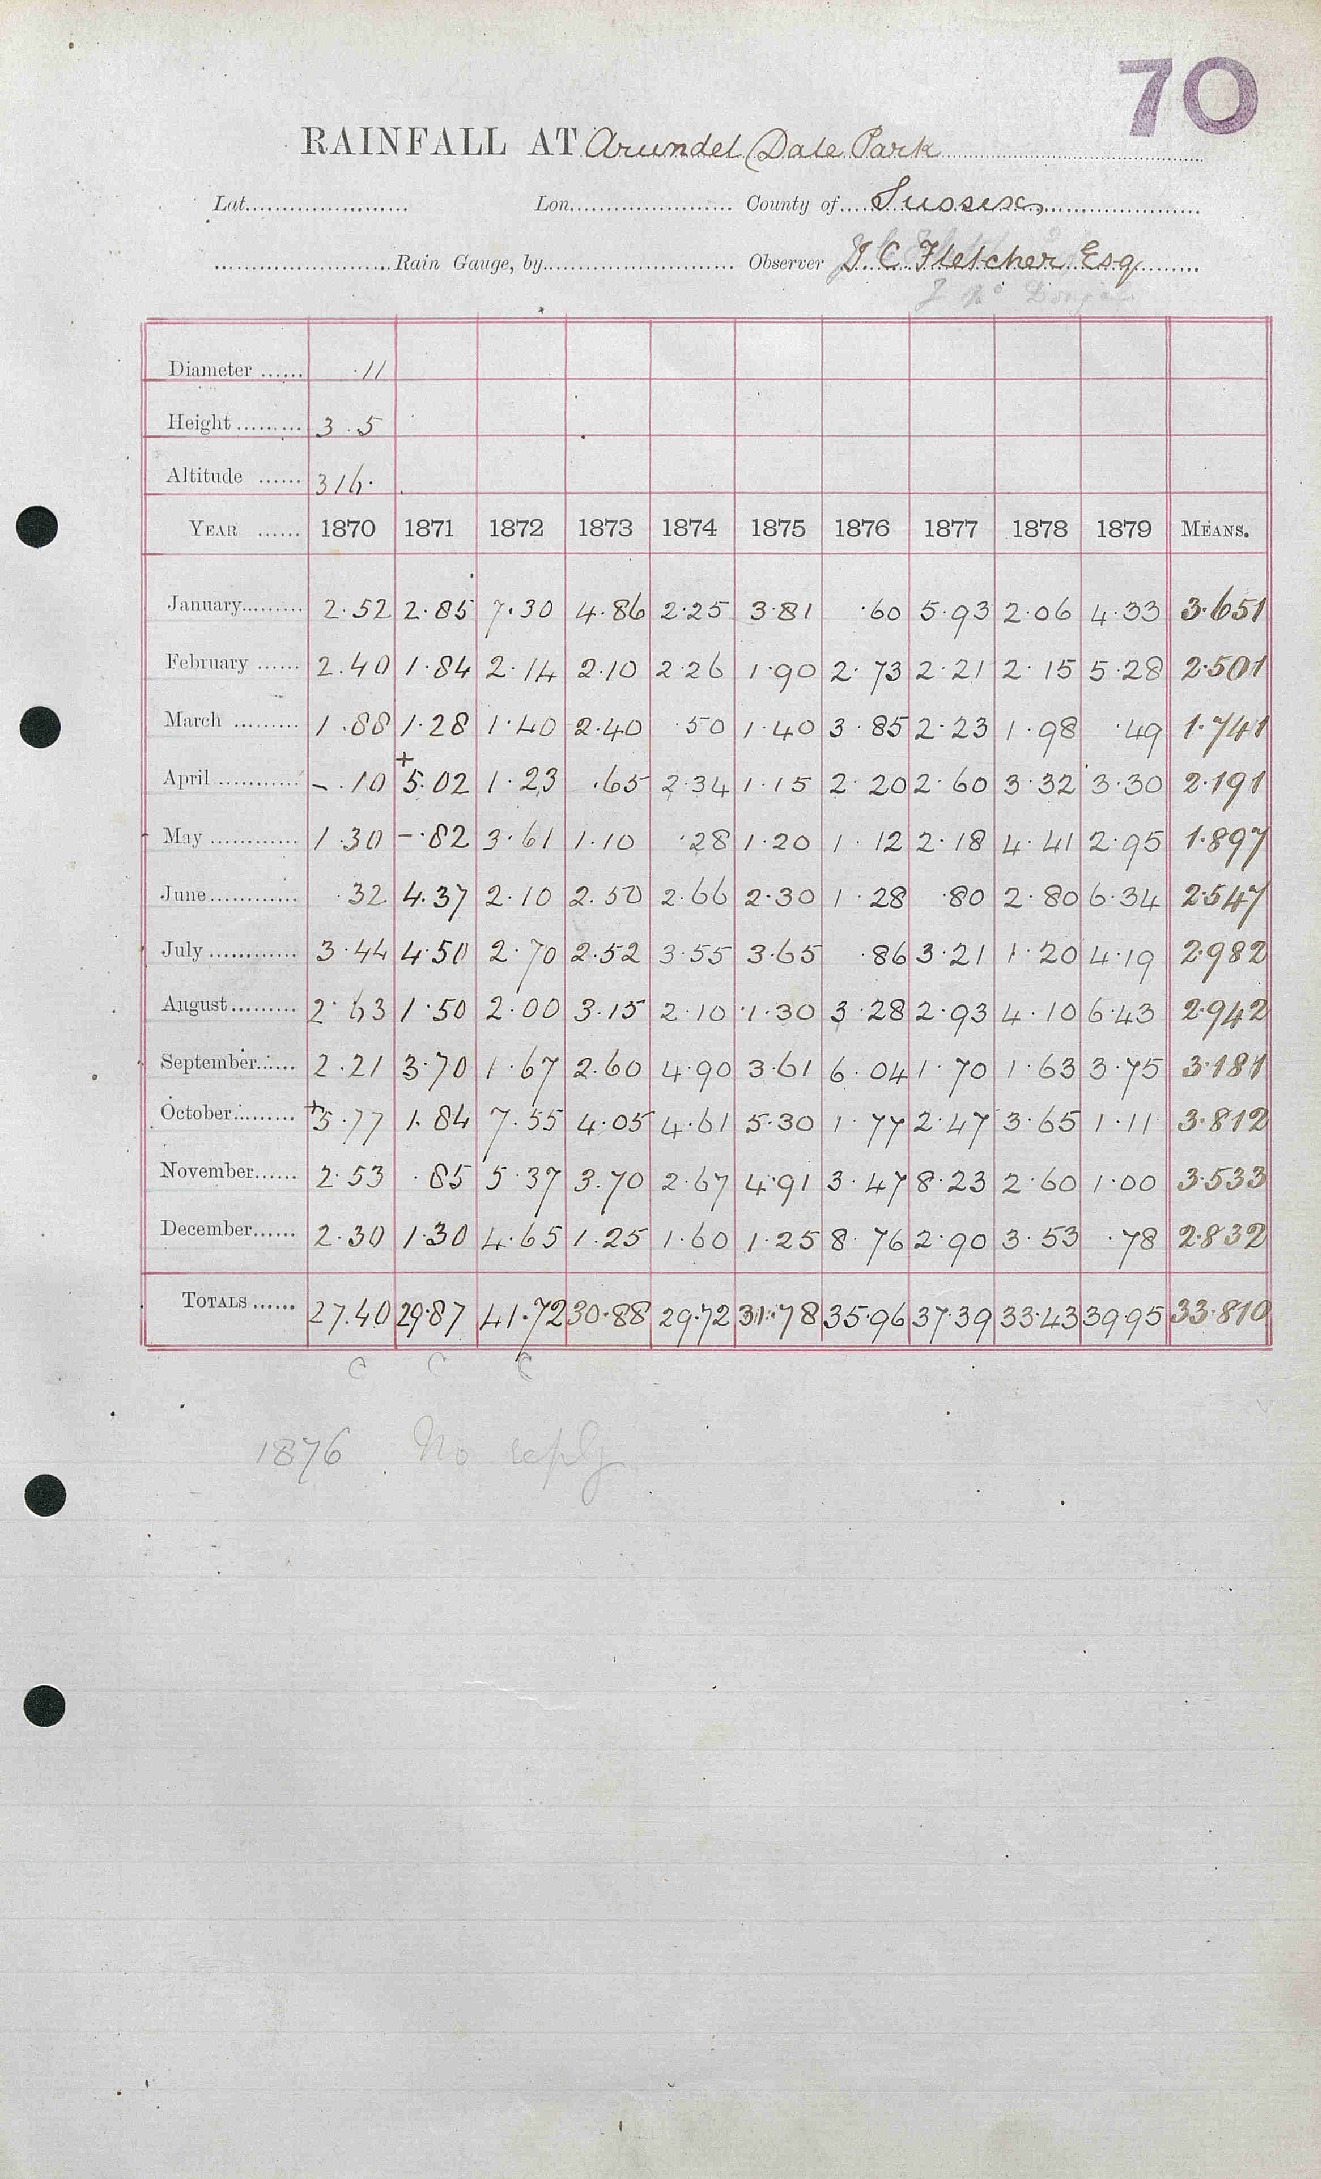 70
RAINFALL AT Arundel (Dale Park
Lat. Lon. County of Sussex,
Rain Gauge, by Observer J C Fletcher Esq
Diameter ...... ·11
Height ......... 3 . 5
Altitude ...... 316·
YEAR ...... 1870 1871 1872 1873 1874 1875 1876 1877 1878 1879 MEANS.
January......... 2.52 2.85 7.30 4.86 2.25 3.81 .60 5.93 2.06 4.33 3.651
February ...... 2.40 1.84 2.14 2.10 2.26 1.90 2.73 2.21 2.15 5.28 2.501
March ......... 1.88 1.28 1.40 2.40 .50 1.40 3.85 2.23 1.98 .49 1.741
April ............ - .10 + 5.02 1.23 .65 2.34 1.15 2.20 2.60 3.32 3.30 2.191
May ............ 1.30 - .82 3.61 1.10 .28 1.20 1.12 2.18 4.41 2.95 1.897
June............ .32 4.37 2.10 2.50 2.66 2.30 1.28 .80 2.80 6.34 2.547
July ............ 3.44 4.50 2.70 2.52 3.55 3.65 .86 3.21 1.20 4.19 2.982
August......... 2.63 1.50 2.00 3.15 2.10 1.30 3.28 2.93 4.10 6.43 2.942
September...... 2.21 3.70 1.67 2.60 4.90 3.61 6.04 1.70 1.63 3.75 3.181
October......... + 5.77 1.84 7.55 4.05 4.61 5.30 1.77 2.47 3.65 1.11 3.812
November...... 2.53 .85 5.37 3.70 2.67 4.91 3.47 8.23 2.60 1.00 3.533
December...... 2.30 1.30 4.65 1.25 1.60 1.25 8.76 2.90 3.53 .78 2.832
TOTALS ...... 27.40 29.87 41.72 30.88 29.72 31.78 35.96 37.39 33.43 39.95 33.810
C C C
1876 No reply